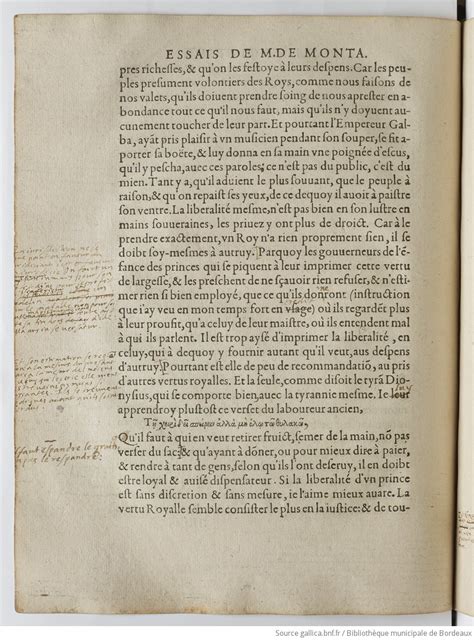 ESSAIS DE M. DE MONTA.
pres richesses, & qu'on les festoye à leurs despens. Car les peu-
ples presument volontiers des Roys, comme nous faisons de
nos valets, qu'ils doiuent prendre soing de nous aprester en a-
bondance tout ce qu'il nous faut, mais qu'ils n'y doyuent au-
cunement toucher de leur part. Et pourtant l'Empereur Gal-
ba, ayāt pris plaisir à vn musicien pendant son souper, se fit a-
porter sa boëte, & luy donna en sa main vne poignée d'escus,
qu'il y pescha, auec ces paroles; ce n'est pas du public, c'est du
mien. Tant y a, qu'il aduient le plus souuant, que le peuple à
raison, & qu'on repaist ses yeux, de ce dequoy il auoit à paistre
son ventre. La liberalité mesme, n'est pas bien en son lustre en
mains souueraines, les priuez y ont plus de droict. Car à le
prendre exactement, vn Roy n'a rien proprement sien, il se
doibt soy-mesmes à autruy. Parquoy les gouuerneurs de l'ē-
fance des princes qui se piquent à leur imprimer cette vertu
de largesse, & les preschent de ne sçauoir rien refuser, & n'esti-
mer rien si bien employé, que ce qu'ils donront (instruction
que i'ay veu en mon temps fort en vsage) où ils regardēt plus
à leur proufit, qu'a celuy de leur maistre, ou ils entendent mal
à qui ils parlent. Il est trop aysé d'imprimer la liberalité, en
celuy, qui à dequoy y fournir autant qu'il veut, aus despens
d'autruy. Pourtant est elle de peu de recommandatiō, au pris
d'autres vertus royalles. Et la seule, comme disoit le tyrā Dio-
nysius, qui se comporte bien, auec la tyrannie mesme. Ie leur
apprendroy plustost ce verset du laboureur ancien,
Qu'il faut à qui en veut retirer fruict, semer de la main, nō pas
verser du sac: & qu'ayant à doner, ou pour mieux dire à paier,
& rendre à tant de gens, selon qu'ils l'ont deseruy, il en doibt
estre loyal & auisé dispensateur. Si la liberalité d'vn prince
est sans discretion & sans mesure, ie l'aime mieux auare. La
vertu Royalle semble consister le plus en la iustice: & de tou-
Source gallica.bnf.fr / Bibliothèque municipale de Bordeaux